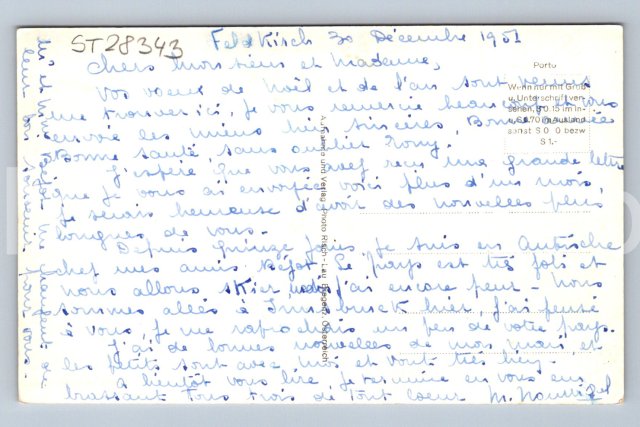 ST28343
Feldkirch 30 Décembre 1951
Chers monsieur et madame,
Vos voeux de Noël et de l'an sont venus
me trouver ici, je vous remercie beaucoup et vous
envoie les miens bien sincères, Bonne année
Bonne santé, sans oublier Rony.
J'espère que vous avez reçu une grande lettre
que je vous ai envoyée voici plus d'un mois,
je serais heureuse d'avoir des nouvelles plus
longues de vous.
Depuis quinze jours je suis en Autriche
chez mes amis Béjot. Le pays est très joli et
nous allons skier, mais j'ai encore peur. Nous
sommes allés à Innsbruck hier, j'ai pensé
à vous, je me rapprochais un peu de votre pays.
J'ai de bonnes nouvelles de mon mari et
les petits sont avec moi et vont très bien.
A bientôt vous lire, je termine en vous em
brassant tous trois de tout coeur M.
Mr et Mme Béjot me chargent de
leur bon souvenir pour vous
Porto
Wenn nur mit Gruß
u. Unterschrift ver-
sehen, S 0.15 im In-
u. S 0.70 im Ausland
sonst S 0 0 bezw
S 1.-
Aufnahme und Verlag Photo Risch-Lau, Bregenz, Österreich